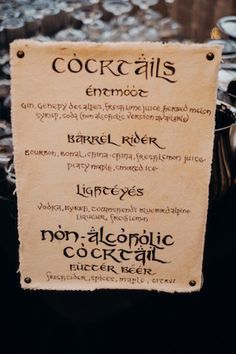 Cocktails
éntmóót
Gin, Genepy decalpes, fresh lime juice, herbed melon
syrup, soda (non alcoholic version available)
Barrel Rider
Bourbon, Bonal, china-china, fresh lemon juice,
maple, smoked ice
Lightéyes
Vodka, Byrrh, Townshend's alpine
liqueur, fresh lemon
nón-álcóhólic
cócktáil
Butter Beer
fresh cider, spices, maple, citrus